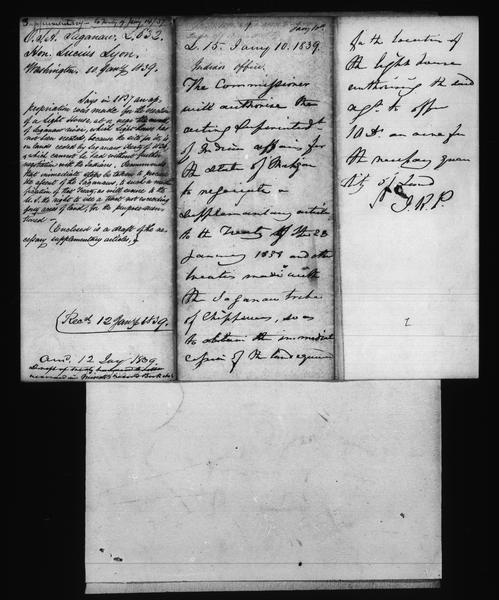 Supplementary - to treaty of Jany 14/37
O.I.A. Saganaw, L. 632.
Hon. Lucius Lyon.
Washington. 10 Jany 1839.
Says in 1837 an ap-
propriation was made for the erection
of a Light House, at or near the mouth
of Saganaw river, which Light House has
not been erected, because the site for it, is
in lands ceded by Saganaw Treaty of 1838
& which cannot be had without further
negotiation with the Indians. Recommends
that immediate steps be taken to procure
the assent of the Saganaws, to such a modi-
fication of that Treaty, as will secure to the
U.S. the right to use a tract not exceeding
forty acres of land, for the purpose mentioned
Enclosed is a draft of the ne-
cessary supplementary articles,
(Recd. 12 Jany 1839.
Ansd. 12 Jay 1839.
Draft of treaty
recorded in Book
Jany 10.
L. 15. Jany 10. 1839.
Indian Office.
The Commissioner
will authorise the
acting Superintendt.
of Indian affairs for
the State of Michign
to negociate a
Supplementary article
to the Treaty of the 23
January 1838 and other
treaties made with
the Saganaw tribe
of Chippewas, so as
to obtain the immediate
cession of the land required
for the location of
the light house
authorising the said
agt. to offer
10 Ds. an acre for
the necessary quan
tity of land
J. R. P.